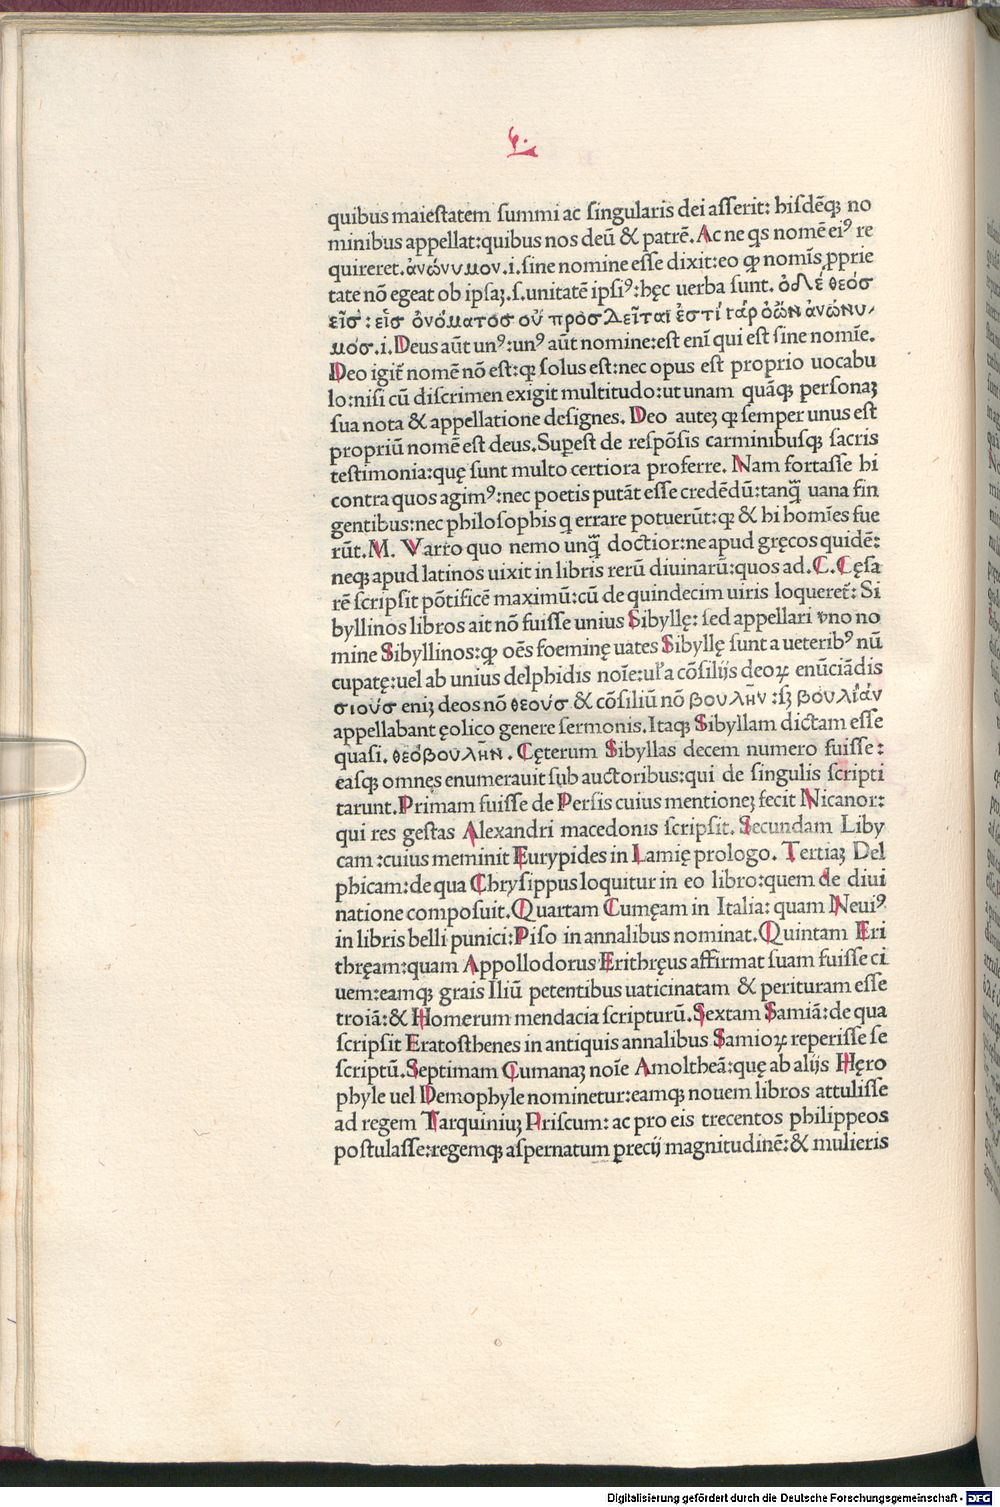 quibus maiestatem summi ac singularis dei asserit: hisdēqꝫ no
minibus appellat:quibus nos deū & patrē.Ac ne qs nomē eiꝰ re
quireret.ἀνώνυμον.i.sine nomine esse dixit:eo ꝙ nomīs ꝓprie
tate nō egeat ob ipsaꝫ.s.unitatē ipsiꝰ:hęc uerba sunt. ὁ δὲ θεόσ
εἷσ: εἷσ ὀνόματοσ οὐ προσδεῖται ἐστί γάρ ὁ ὤν ἀνώνυ
μόσ.i.Deus aūt unꝰ:unꝰ aūt nomine:est enī qui est sine nomīe.
Deo igit̄ nomē nō est:ꝙ solus est:nec opus est proprio uocabu
lo:nisi cū discrimen exigit multitudo:ut unam quāqꝫ personaꝫ
sua nota & appellatione designes. Deo auteꝫ ꝙ semper unus est
propriū nomē est deus.Supest de respōsis carminibusqꝫ sacris
testimonia:quę sunt multo certiora proferre. Nam fortasse hi
contra quos agimꝰ:nec poetis putāt esse credēdū:tanq̄ uana fin
gentibus:nec philosophis q errare potuerūt:ꝙ & hi homīes fue
rūt.M. Varro quo nemo unq̄ doctior:ne apud gręcos quidē:
neqꝫ apud latinos uixit in libris rerū diuinarū:quos ad.C.Cęsa
rē scripsit pōtificē maximū:cū de quindecim uiris loqueret̄: Si
byllinos libros ait nō fuisse unius Sibyllę: sed appellari vno no
mine Sibyllinos:ꝙ oēs foeminę uates Sibyllę sunt a ueteribꝰ nū
cupatę:uel ab unius delphidis noīe:ul̄ a cōsilijs deoꝝ enūciādis
σιούσ eniꝫ deos nō θεούσ & cōsiliū nō βουλήν :sꝫ βουλίαν
appellabant ęolico genere sermonis.Itaqꝫ Sibyllam dictam esse
quasi. θεοβουλήν. Cęterum Sibyllas decem numero fuisse:
easqꝫ omnęs enumerauit sub auctoribus:qui de singulis scripti
tarunt.Primam fuisse de Persis cuius mentioneꝫ fecit Nicanor:
qui res gestas Alexandri macedonis scripsit. Secundam Liby
cam :cuius meminit Eurypides in Lamię prologo. Tertiaꝫ Del
phicam:de qua Chrysippus loquitur in eo libro:quem de diui
natione composuit.Quartam Cumęam in Italia: quam Neuiꝰ
in libris belli punici:Piso in annalibus nominat.Quintam Eri
thręam:quam Appollodorus Erithręus affirmat suam fuisse ci
uem:eamqꝫ grais Iliū petentibus uaticinatam & perituram esse
troiā:& Homerum mendacia scripturū.Sextam Samiā:de qua
scripsit Eratosthenes in antiquis annalibus Samioꝝ reperisse se
scriptū.Septimam Cumanaꝫ noīe Amoltheā:quę ab alijs Hęro
phyle uel Demophyle nominetur:eamqꝫ nouem libros attulisse
ad regem Tarquiniuꝫ Priscum: ac pro eis trecentos philippeos
postulasse:regemqꝫ aspernatum ꝑrecij magnitudinē:& mulieris
Digitalisierung gefördert durch die Deutsche Forschungsgemeinschaft - DFG